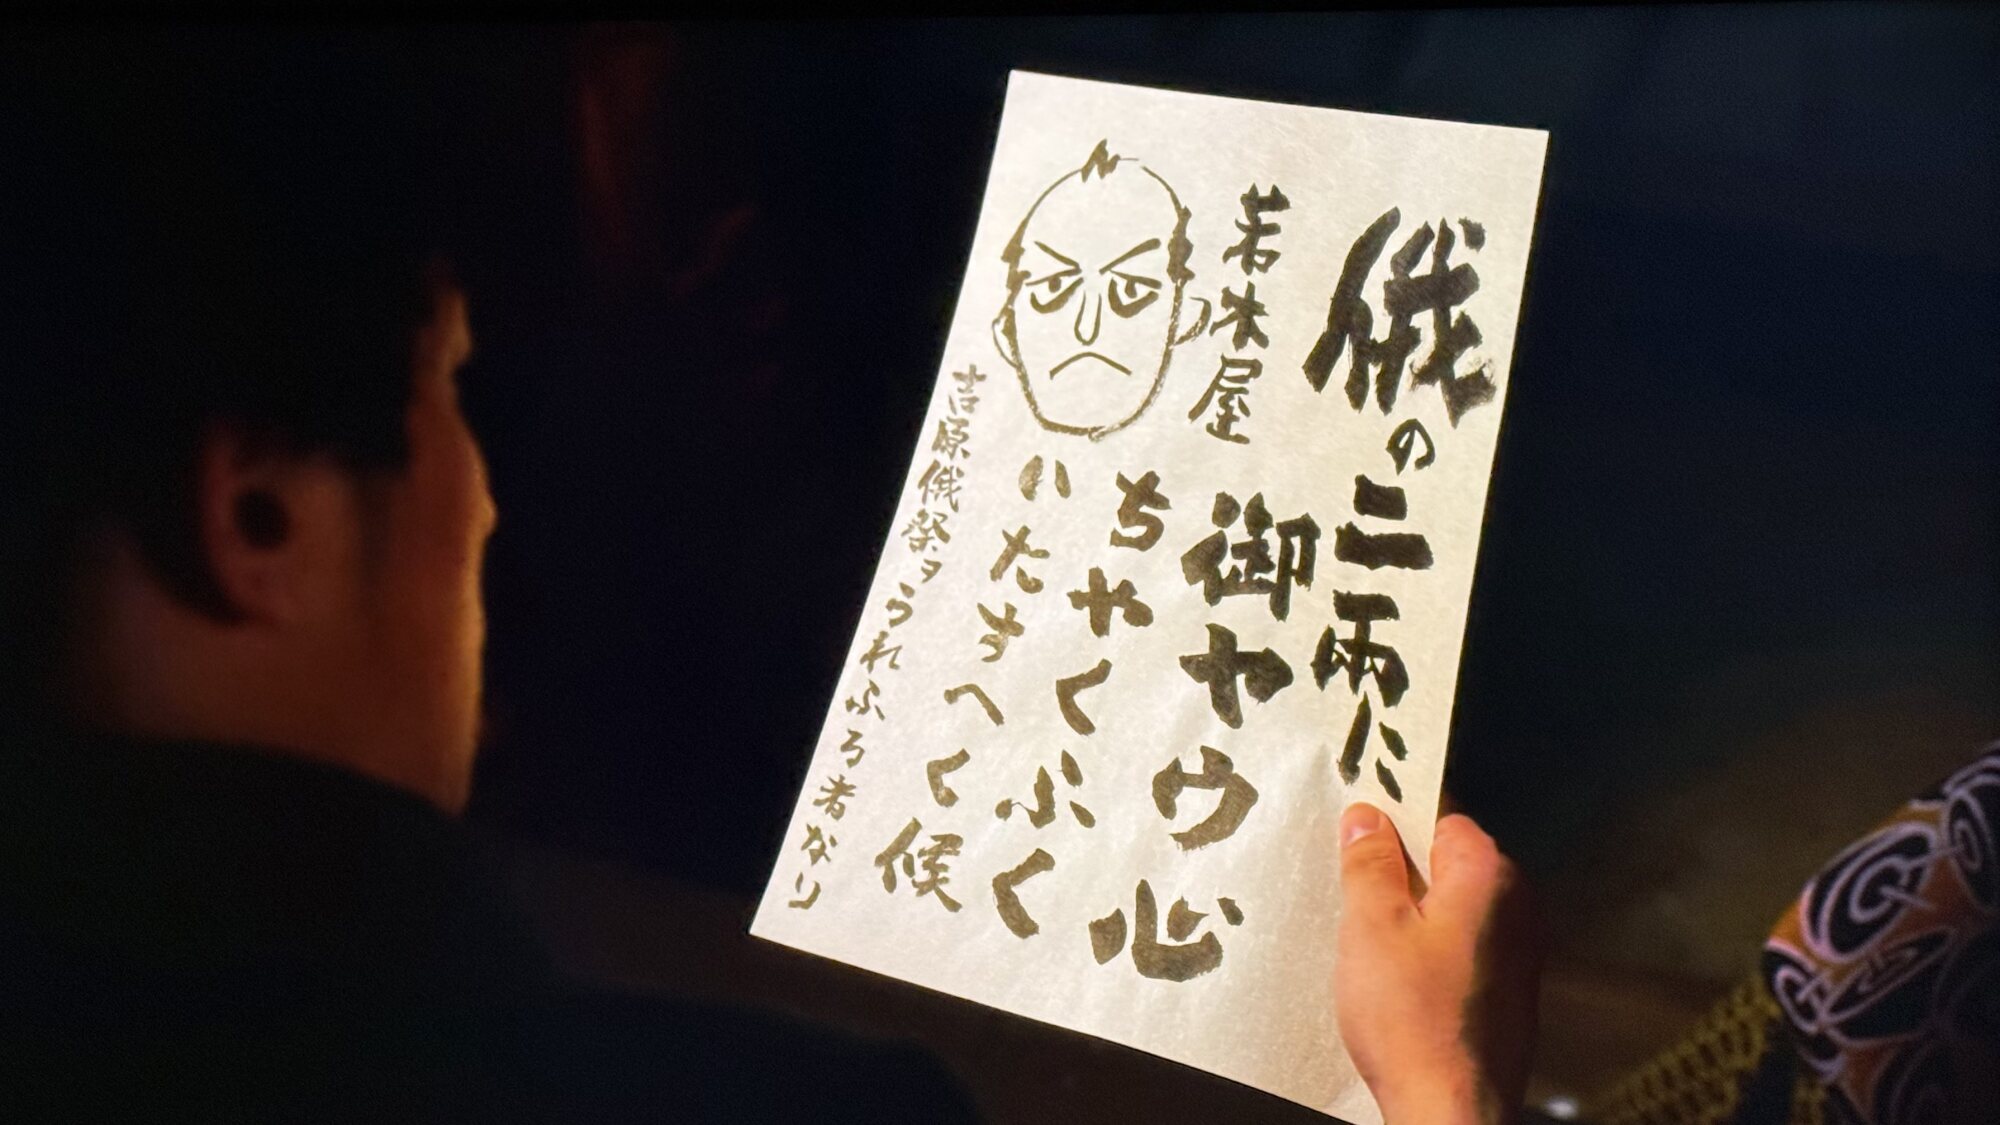 俄の二雨に
若木屋 御ヤウ心
ちやくふく
いたすへく候
吉原俄祭ヲうれふる者なり